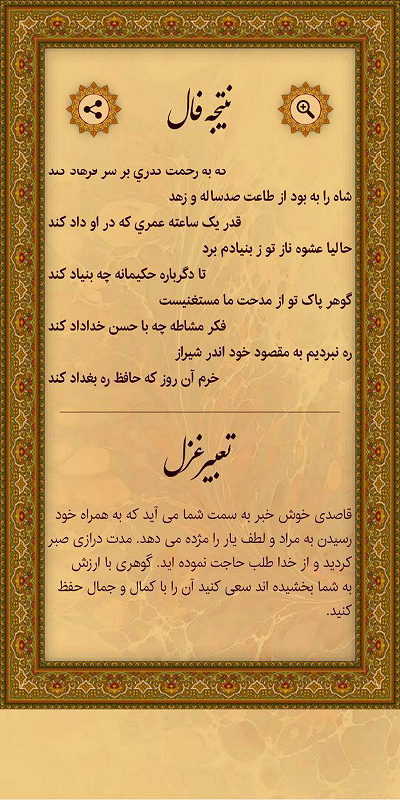 نتیجه فال
که به رحمت گذري بر سر فرهاد کند
شاه را به بود از طاعت صدساله و زهد
قدر یک ساعته عمري که در او داد کند
حالیا عشوه ناز تو ز بنیادم برد
تا دگرباره حکیمانه چه بنیاد کند
گوهر پاک تو از مدحت ما مستغنیست
فکر مشاطه چه با حسن خداداد کند
ره نبردیم به مقصود خود اندر شیراز
خرم آن روز که حافظ ره بغداد کند
تعبیر غزل
قاصدی خوش خبر به سمت شما می آید که به همراه خود
رسیدن به مراد و لطف یار را مژده می دهد. مدت درازی صبر
کردید و از خدا طلب حاجت نموده اید. گوهری با ارزش
به شما بخشیده اند سعی کنید آن را با کمال و جمال حفظ
کنید.